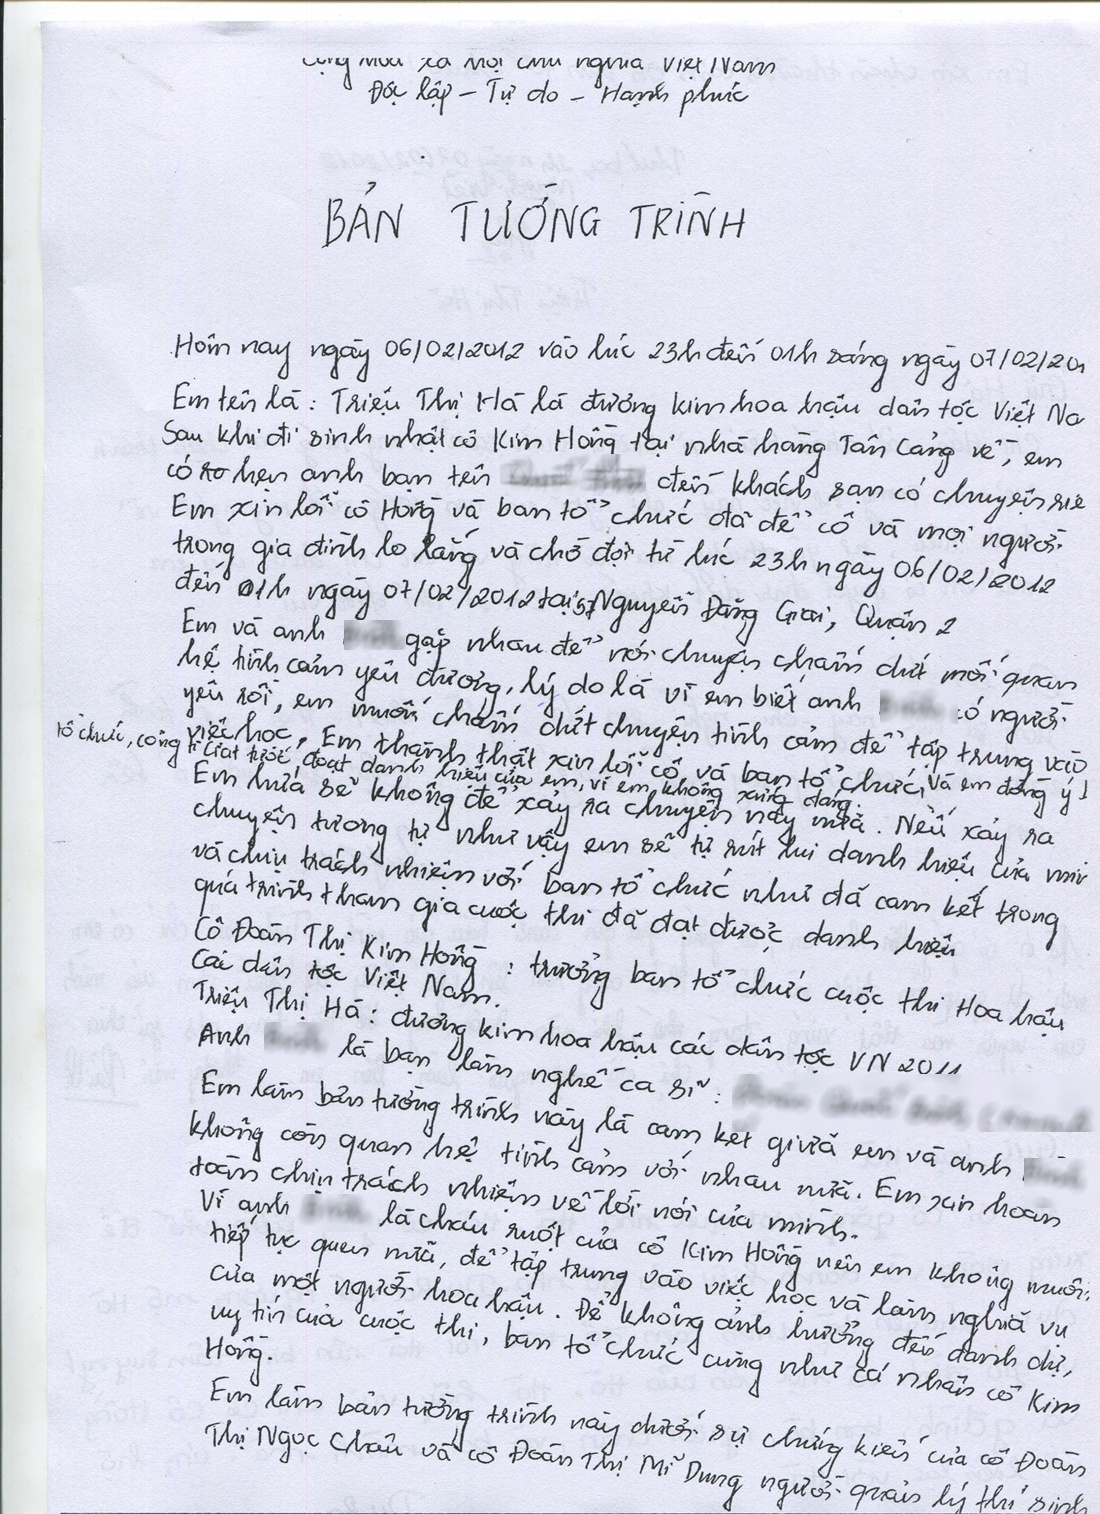 Cộng hòa xã hội chủ nghĩa Việt Nam
Độc lập - Tự do - Hạnh phúc
BẢN TƯỜNG TRÌNH
Hôm nay ngày 06/02/2012 vào lúc 23h đến 01h sáng ngày 07/02/201
Em tên là : Triệu Thị Hà là đương kim hoa hậu dân tộc Việt Na
Sau khi đi sinh nhật cô Kim Hồng tại nhà hàng Tân Cảng về, em
có hẹn anh bạn tên đến khách sạn có chuyện riê
Em xin lỗi cô Hồng và ban tổ chức đã để cô và mọi người
trong gia đình lo lắng và chờ đợi từ lúc 23h ngày 06/02/2012
đến 01h ngày 07/02/2012 tại 57 Nguyễn Đăng Giai, Quận 2
Em và anh gặp nhau để nói chuyện chấm dứt mối quan
hệ tình cảm yêu đương, lý do là vì em biết anh có người
yêu rồi, em muốn chấm dứt chuyện tình cảm để tập trung vào
việc học, Em thành thật xin lỗi cô và ban tổ chức, Và em đồng ý
tổ chức, công ti tước đoạt danh hiệu của em, vì em không xứng đáng.
Em hứa sẽ không để xảy ra chuyện này nữa. Nếu xảy ra
chuyện tương tự như vậy em sẽ tự rút lui danh hiệu của mìn
và chịu trách nhiệm với ban tổ chức như đã cam kết trong
quá trình tham gia cuộc thi đã đạt được danh hiệu
Cô Đoàn Thị Kim Hồng : trưởng ban tổ chức cuộc thi Hoa hậu
Các dân tộc Việt Nam.
Triệu Thị Hà : đương kim hoa hậu các dân tộc VN 2011
Anh là bạn làm nghề ca sĩ :
Em làm bản tường trình này là cam kết giữa em và anh
không còn quan hệ tình cảm với nhau nữa. Em xin hoàn
toàn chịu trách nhiệm về lời nói của mình.
Vì anh là cháu ruột của cô Kim Hồng nên em không muốn
tiếp tục quen nữa, để tập trung vào việc học và làm nghĩa vụ
của một người hoa hậu. Để không ảnh hưởng đến danh dự,
uy tín của cuộc thi, ban tổ chức cũng như cá nhân cô Kim
Hồng.
Em làm bản tường trình này dưới sự chứng kiến của cô Đoàn
Thị Ngọc Châu và cô Đoàn Thị Mĩ Dung người quản lý thí sinh